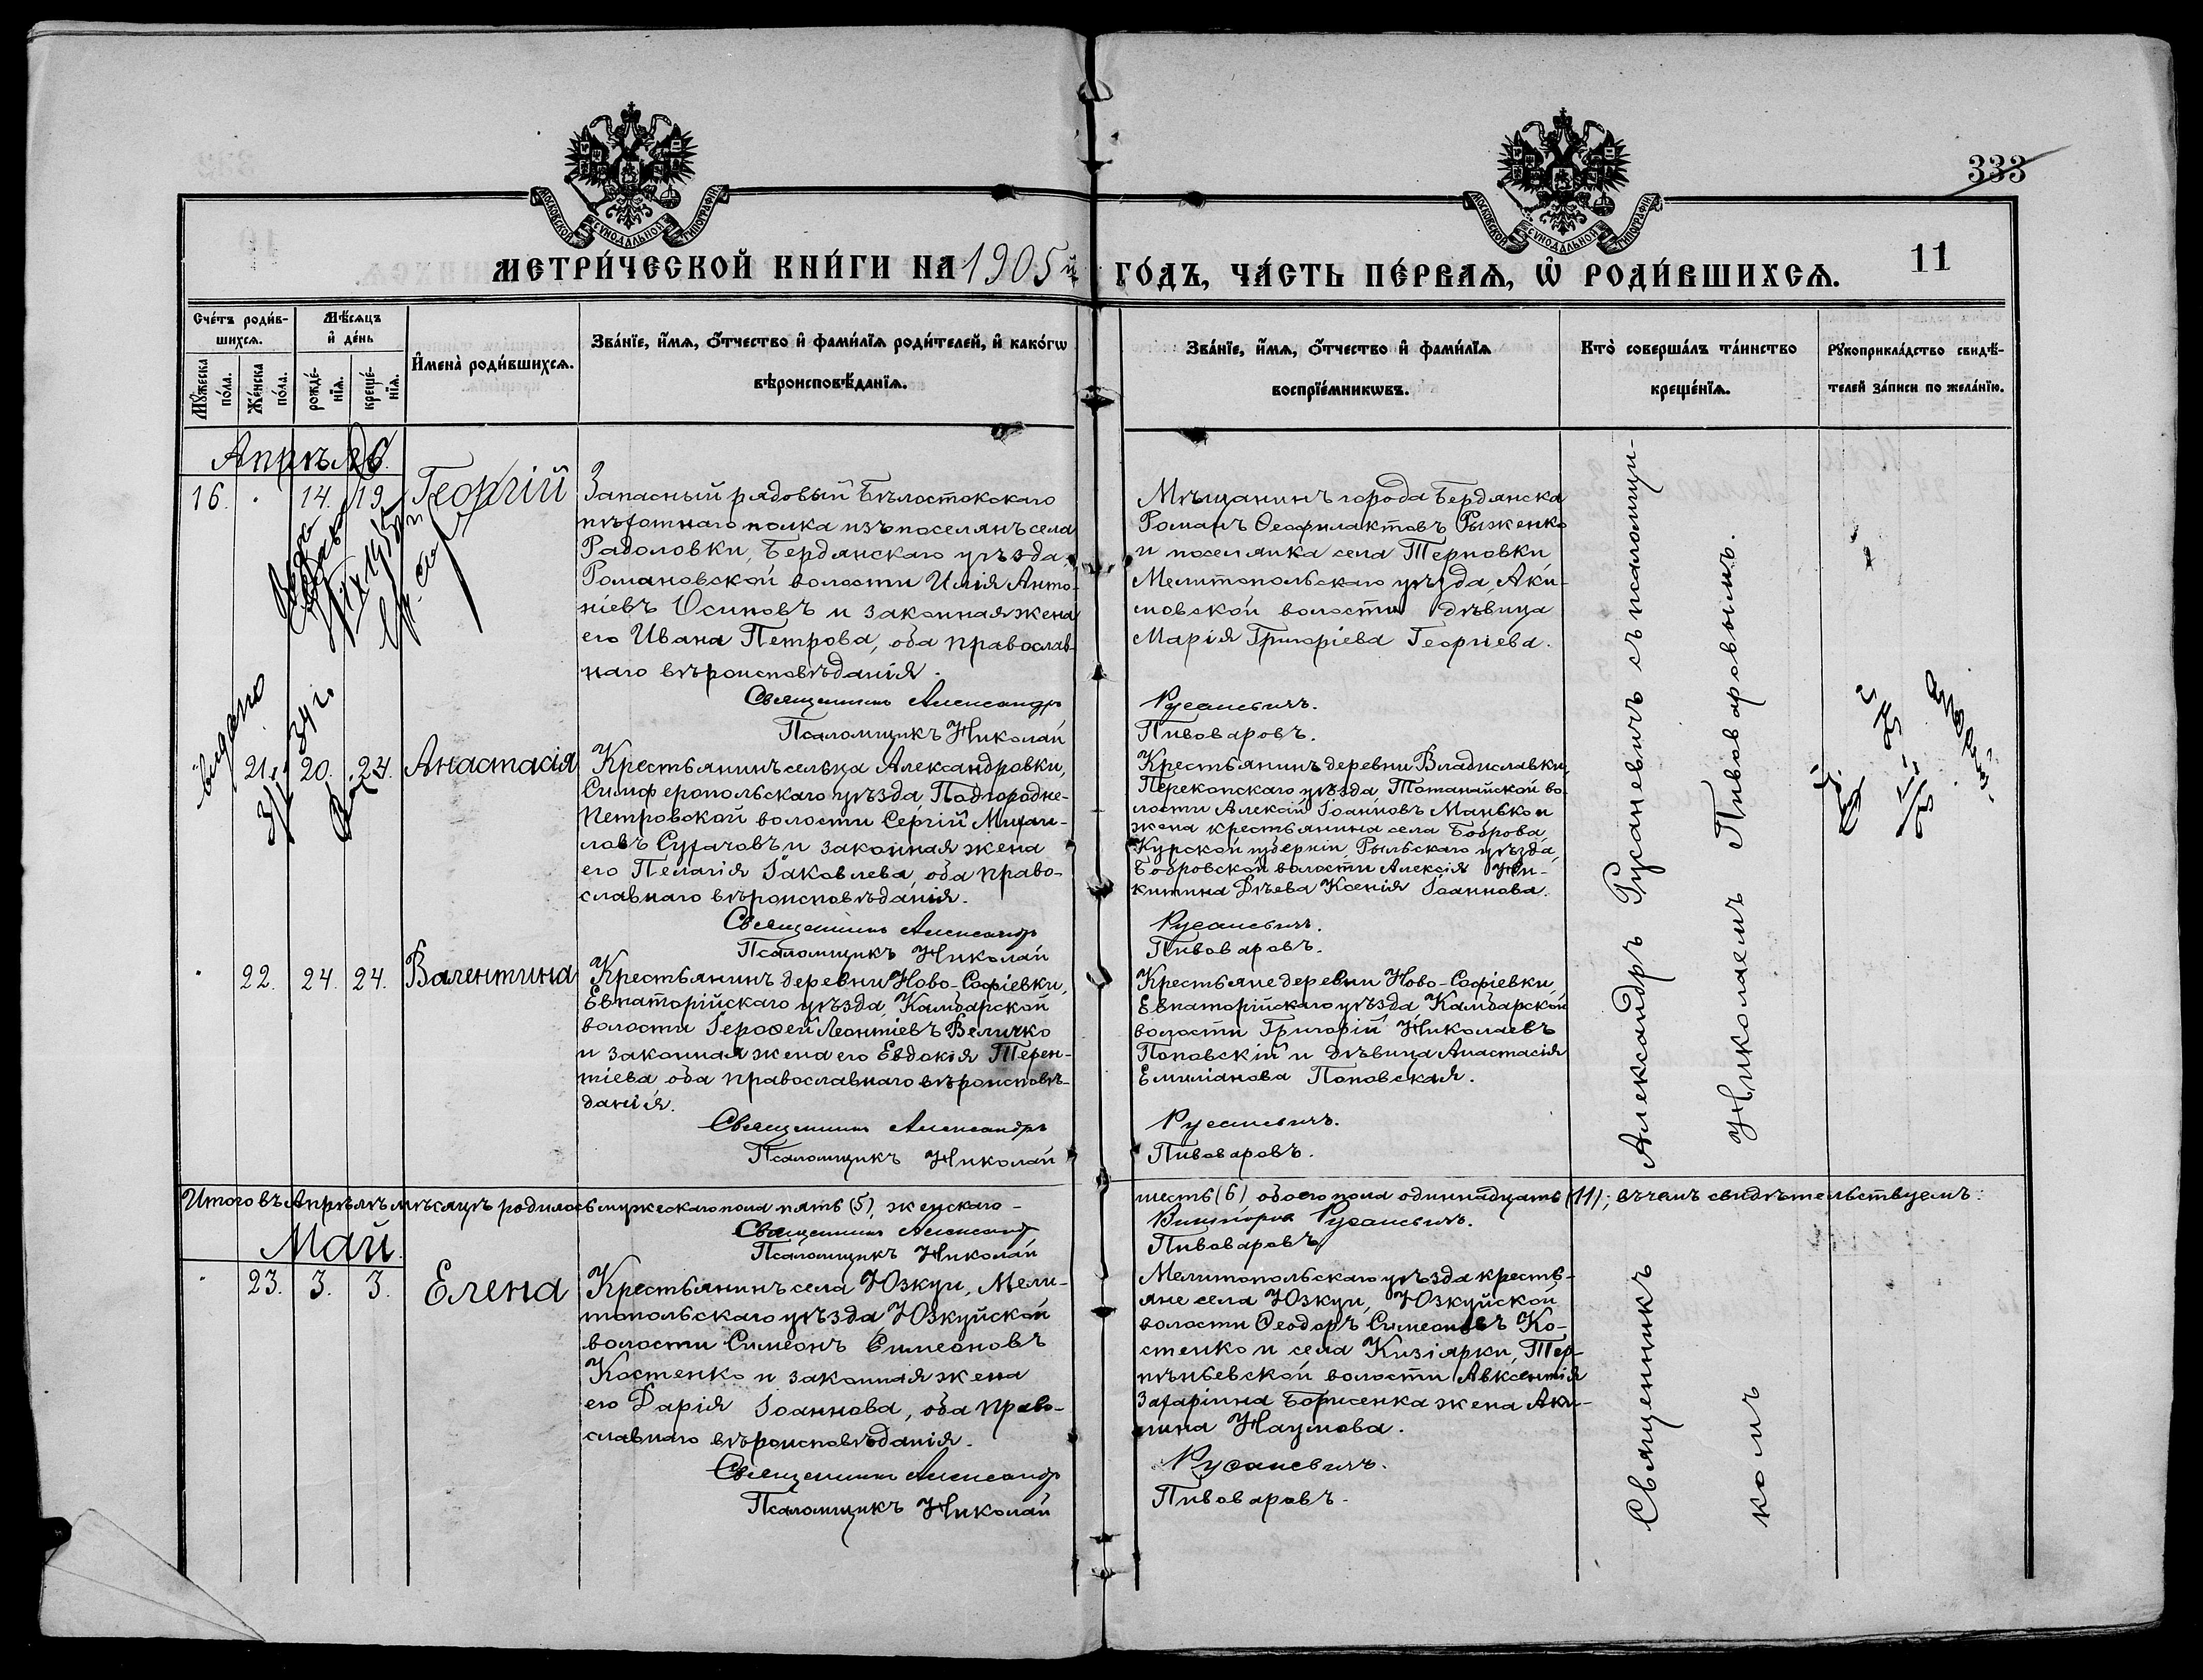 МОСКОВСКОЙ СУНОДАЛЬНОЙ ТИПОГРАФІИ
МОСКОВСКОЙ СУНОДАЛЬНОЙ ТИПОГРАФІИ
333
11
МЕТРИ́ЧЕСКОЙ КНИ́ГИ НА 1905 й ГО́ДЪ, ЧА́СТЬ ПЕ́РВАѦ, Ѡ҆ РОДИ́ВШИХСѦ.
Сче́тъ роди́в-
шихсѧ.
Мѣ́сѧцъ
и҆ де́нь
Мꙋ́жеска
по́ла.
Же́нска
по́ла.
рожде́-
нїѧ.
креще́-
нїѧ.
И҆мена̀ роди́вшихсѧ.
Зва́нїе, и҆́мѧ, ѻ҆́тчество и҆ фами́лїѧ роди́телей, и҆ како́гѡ
вѣроисповѣ́данїѧ.
Зва́нїе, и҆́мѧ, ѻ҆́тчество и҆ фами́лїѧ
воспрїе́мникѡвъ.
Кто̀ соверша́лъ та́инство
креще́нїѧ.
Рꙋкоприкла́дство свидѣ́-
телей за́писи по жела́нїю.
Апрѣль.
16. 14. 19. Георгій
Запасный рядовый Бѣлостокскаго
пѣхотнаго полка изъ поселянъ села
Радоловки, Бердянскаго уѣзда,
Романовской волости Илія Анто-
ніевъ Осиповъ и законная жена
его Ивана Петрова, оба православ-
наго вѣроисповѣданія.
Священникъ Александръ
Псаломщикъ Николай
Мѣщанинъ города Бердянска
Романъ Ѳеофилактовъ Рыженко
и поселянка села Терновки
Мелитопольскаго уѣзда, Аки-
мовской волости дѣвица
Марія Григоріева Георгіева.
Русаневичъ.
Пивоваровъ.
выдано
21. 20. 24. Анастасія
Крестьянинъ сельца Александровки,
Симферопольскаго уѣзда, Подгородне-
Петровской волости Сергій Михаи-
ловъ Сухачовъ и законная жена
его Пелагія Іаковлева, оба право-
славнаго вѣроисповѣданія.
Священникъ Александръ
Псаломщикъ Николай
Крестьянинъ деревни Владиславки,
Перекопскаго уѣзда Тотанайской во-
лости Алексій Іоанновъ Манько и
жена крестьянина села Боброва
Курской губерніи, Рыльскаго уѣзда,
Бобровской волости Алексія Ни-
китина Дѣева Ксенія Іоаннова.
Русаневичъ.
Пивоваровъ.
22. 24. 24. Валентина
Крестьянинъ деревни Ново-Софіевки,
Евпаторійскаго уѣзда, Камбарской
волости Іерофей Леонтіевъ Величко
и законная жена его Евдокія Терен-
тіева, оба православнаго вѣроисповѣ-
данія.
Священникъ Александръ
Псаломщикъ Николай
Крестьяне деревни Ново-Софіевки,
Евпаторійскаго уѣзда, Камбарской
волости Григорій Николаевъ
Поповскій и дѣвица Анастасія
Емиліанова Поповская.
Русаневичъ.
Пивоваровъ.
Итого въ Апрѣлѣ мѣсяцѣ родилось мужескаго пола пять (5), женскаго - шесть (6) обоего пола одиннадцать (11); въ чемъ свидѣтельствуемъ:
Священникъ Александръ
Псаломщикъ Николай
Русаневичъ.
Пивоваровъ
Май.
23. 3. 3. Елена
Крестьянинъ села Юзкуи, Мели-
топольскаго уѣзда Юзкуйской
волости Симеонъ Симеоновъ
Костенко и законная жена
его Дарія Іоаннова, оба право-
славнаго вѣроисповѣданія.
Священникъ Александръ
Псаломщикъ Николай
Мелитопольскаго уѣзда кресть-
яне села Юзкуи, Юзкуйской
волости Ѳеодоръ Симеоновъ Ко-
стенко и села Кизіярки, Тер-
пѣньевской волости Авксентія
Захаріина Борисенка жена Аки-
лина Наумова.
Русаневичъ.
Пивоваровъ.
Священникъ Александръ Русаневичъ съ псаломщи-
комъ Николаемъ Пивоваровымъ.